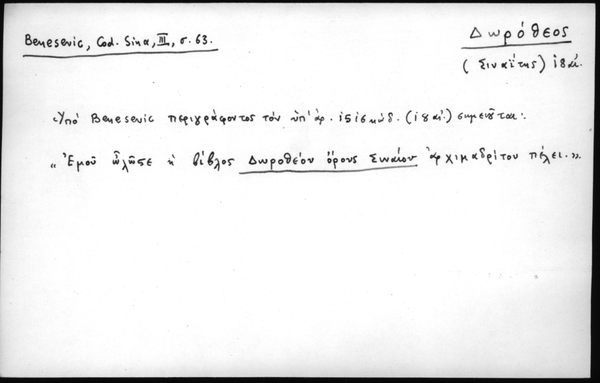 Benesevic, Cod. Sina, III, σ. 63.
Δωρόθεος
(Σιναΐτης) ιδ΄ αἰ.
Ὑπό Benesevic περιγράφοντος τόν ὑπ' ἀρ. κώδ. σημειοῦται:
« Ἐμοῦ ἡ βίβλος Δωροθέου ὄρους Σιναίου ἀρχιμαδρίτου πέλει. ».